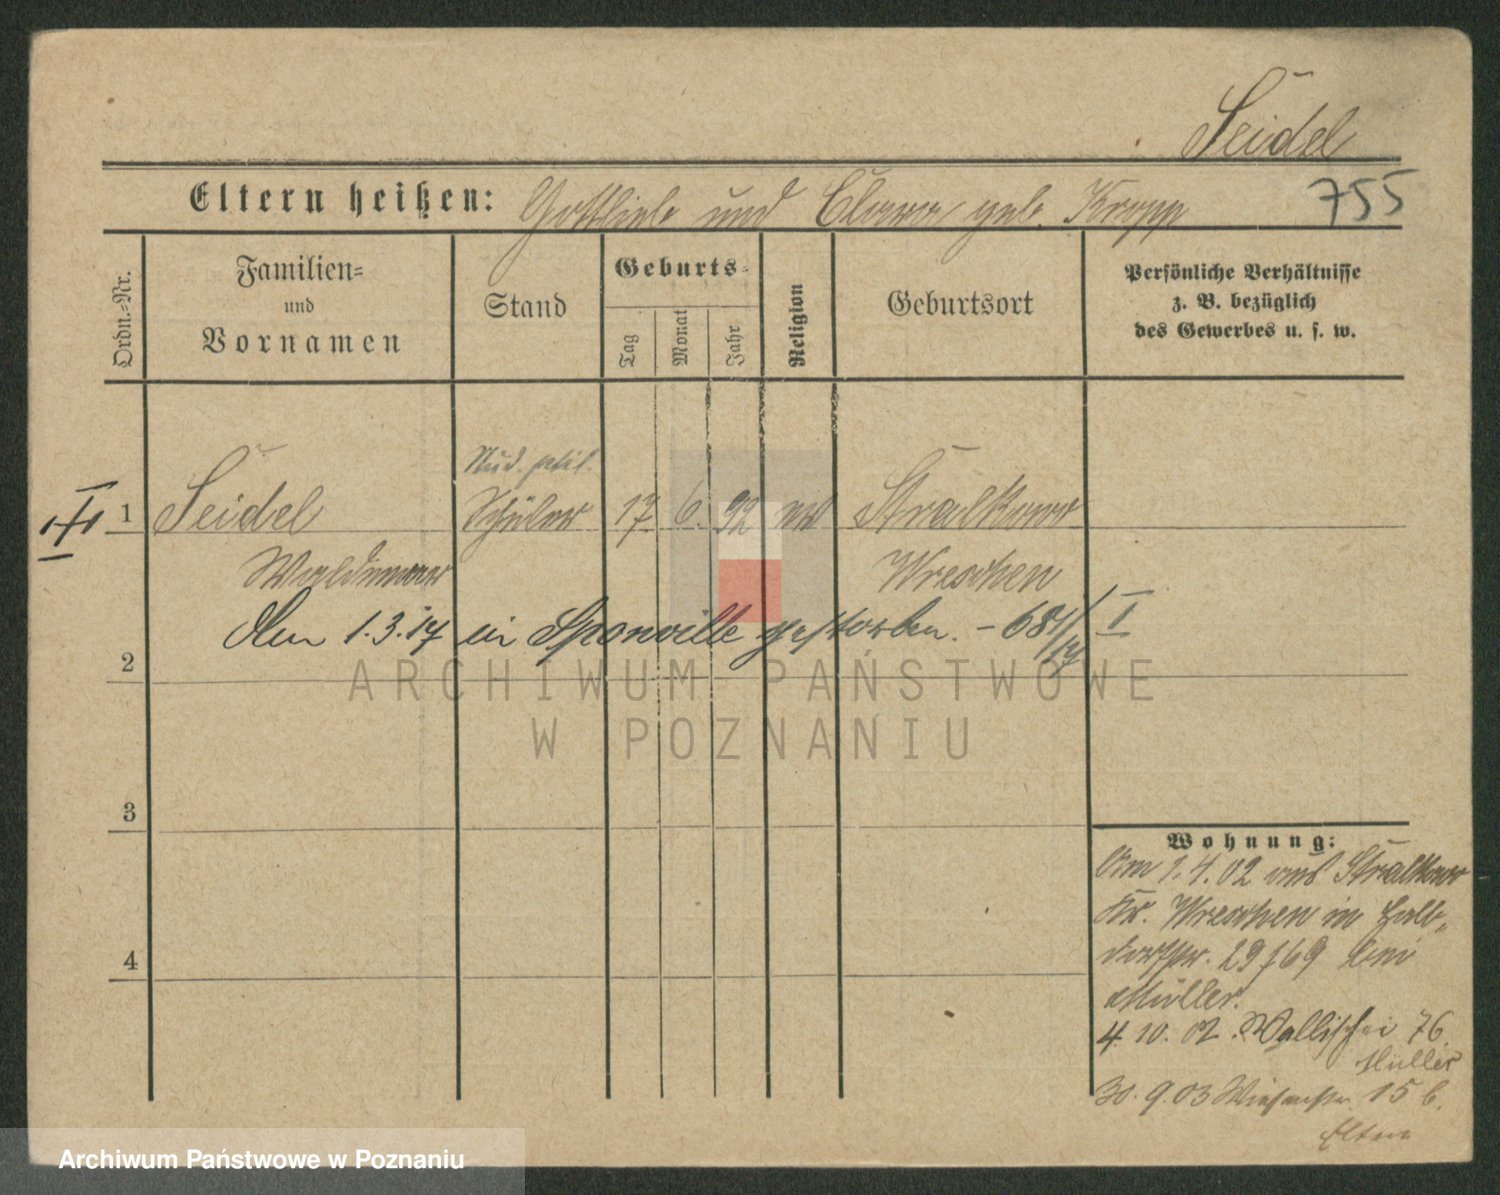 Seidel
Eltern heißen: Gottlieb und Clara geb. Kropp
755
Ordn.-Nr.
Familien-
und
Vornamen
Stand
Geburts-
Tag
Monat
Jahr
Religion
Geburtsort
Persönliche Verhältnisse
z. B. bezüglich
des Gewerbes u. s. w.
1 Seidel Schüler 17 6. 92 ev Stralkowo
Waldemar Wreschen
Den 1.3.17 in Sponville gestorben. I
2
ARCHIWUM PAŃSTWOWE
W POZNANIU
3
4
Wohnung:
Am 1.4.02 aus Stralkowo
Kr. Wreschen in Halb-
dorfstr. 29 bei
Müller.
4. 10. 02. Wallischei 76
Müller
30. 9. 03 Wiesenstr. 15 b.
Eltern
Archiwum Państwowe w Poznaniu